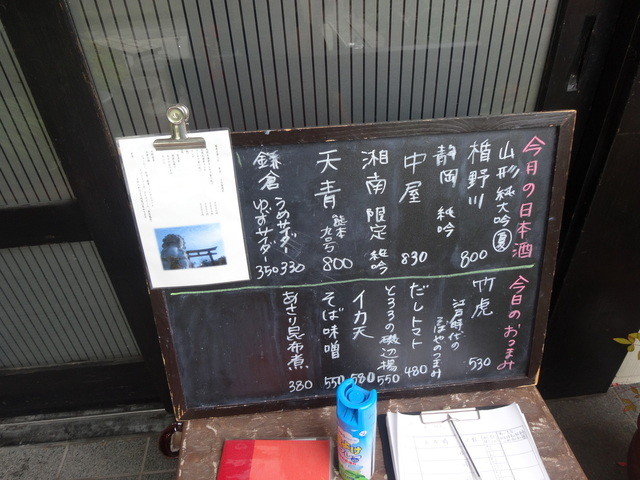 今月の日本酒
山形 純大吟 夏
楯野川 800
静岡 純吟
中屋 830
湘南 限定 純吟
天青 熊本九号 800
鎌倉
うめサイダー 330
ゆずサイダー 350
今日のおつまみ
竹虎 530
江戸時代の
そばやのつまみ
だしトマト 480
とろろの磯辺揚 550
イカ天 580
そば味噌 550
あさり昆布煮 380